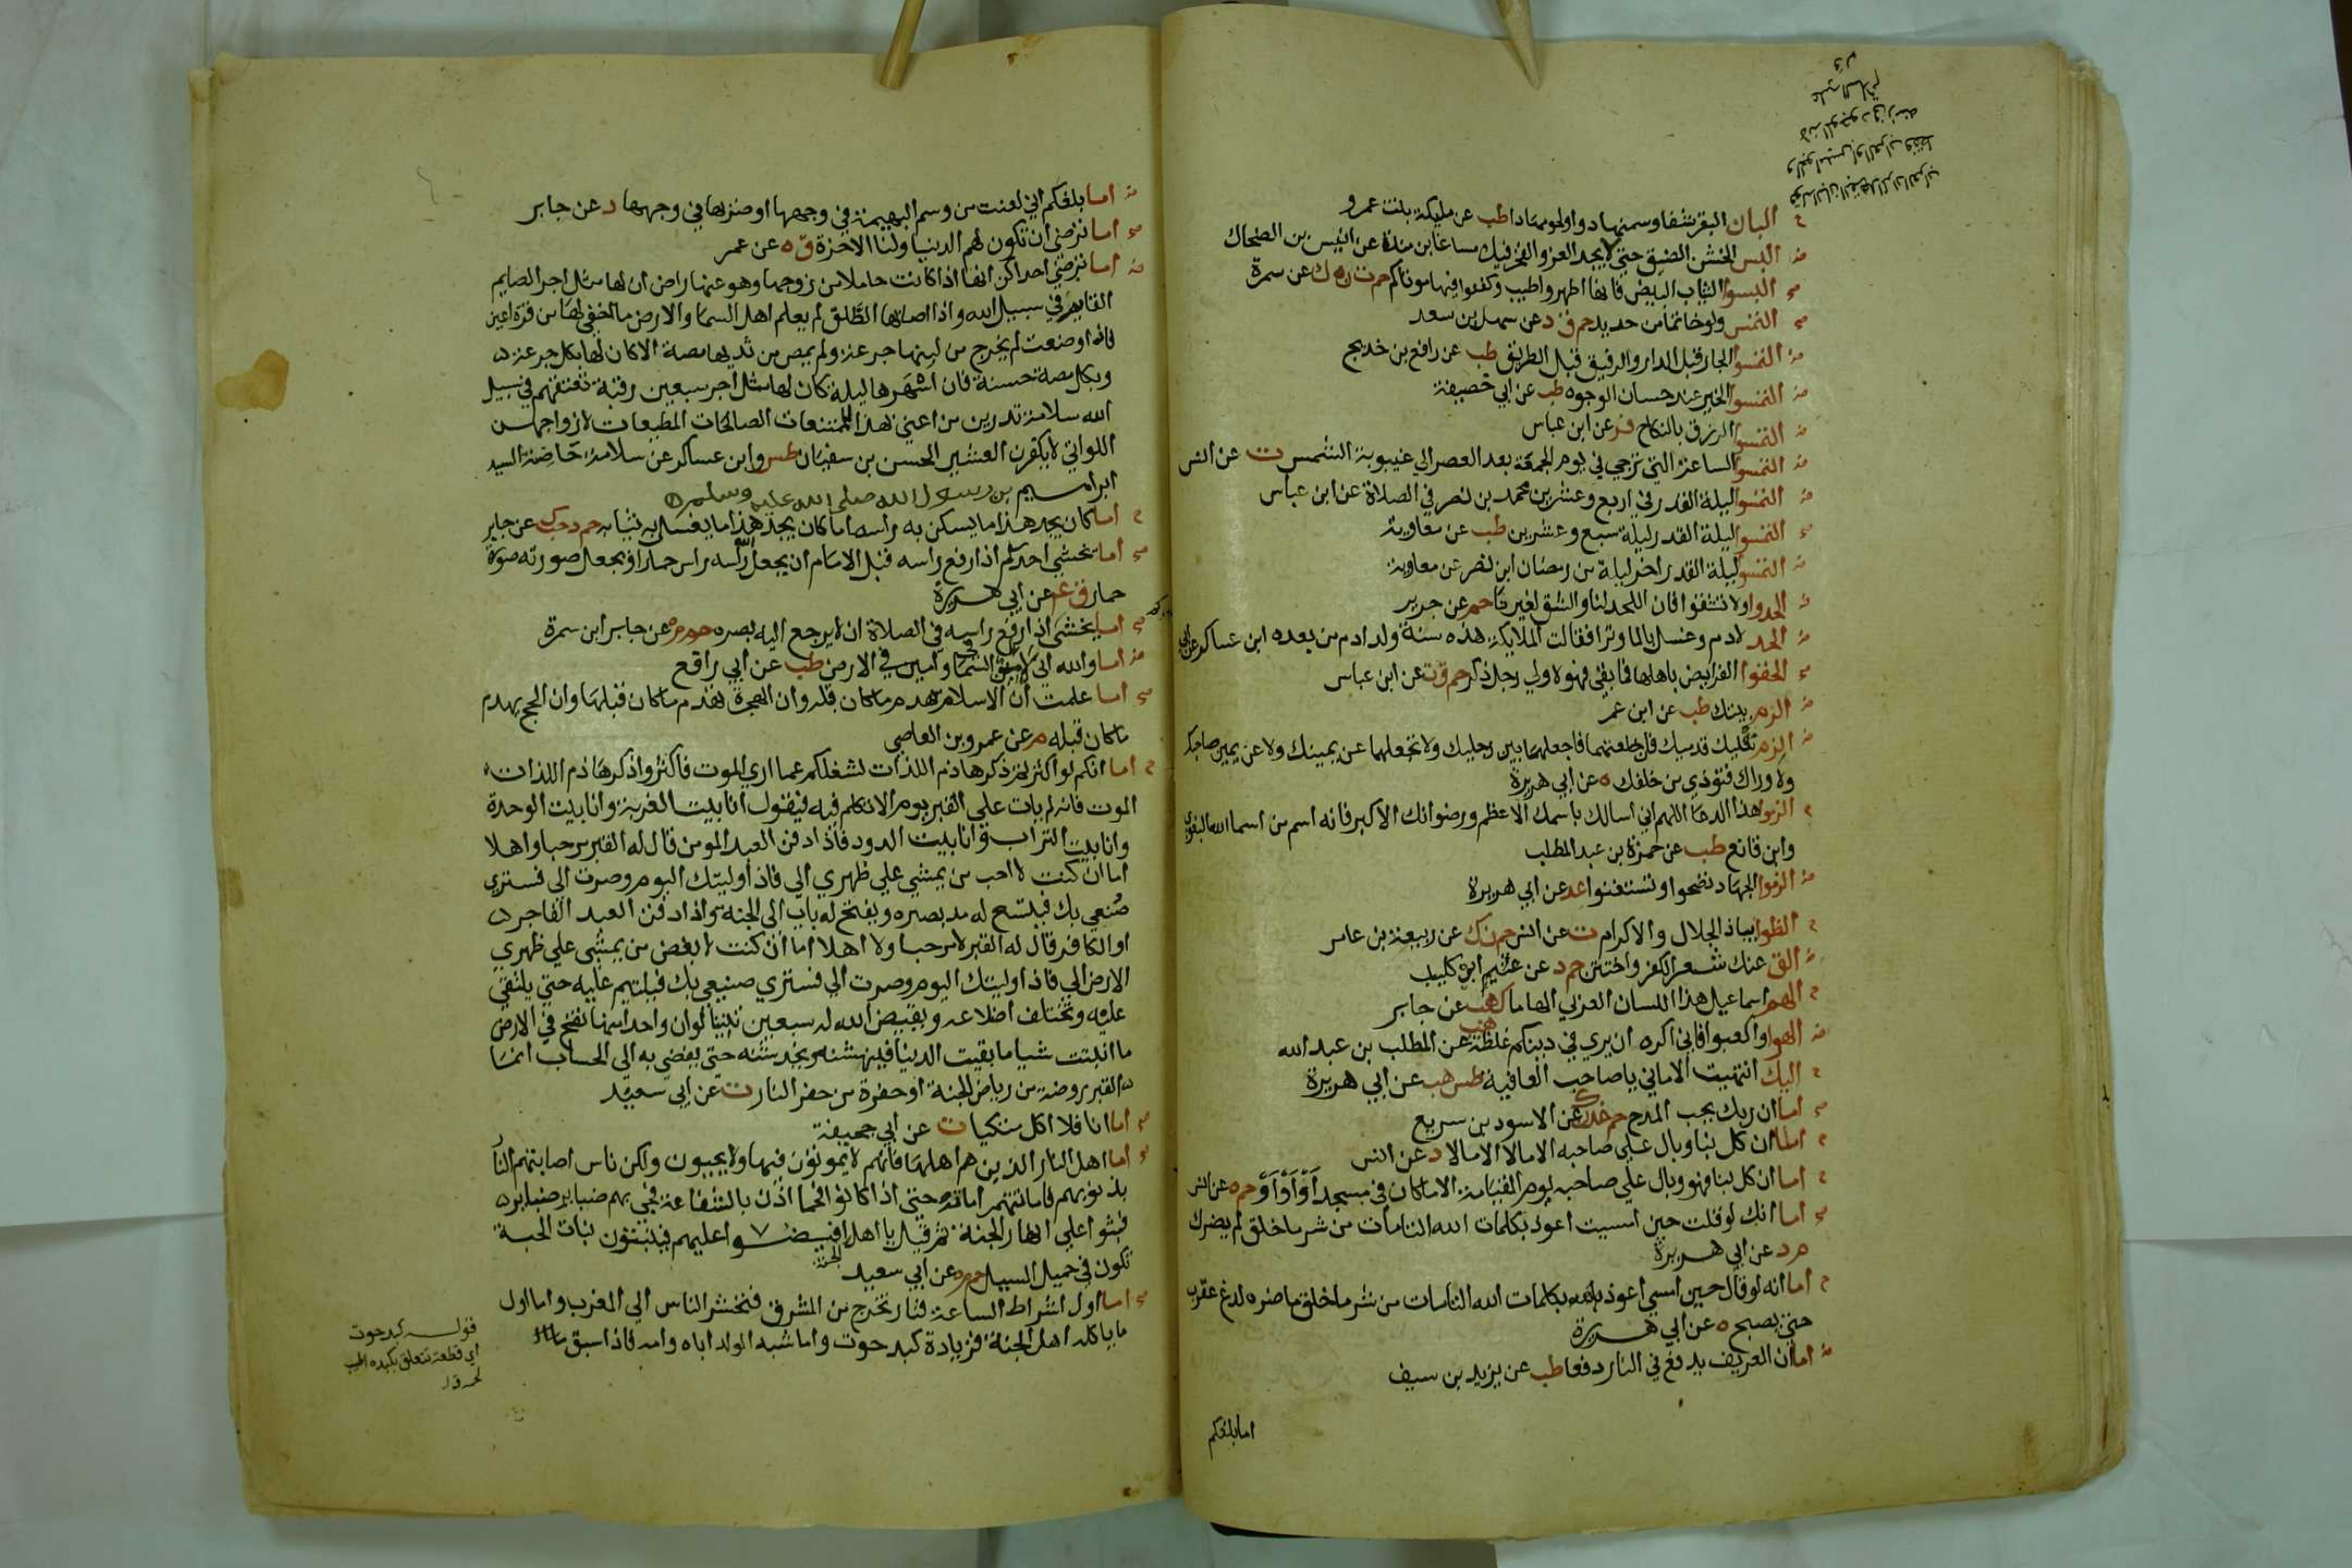 البان البقر شفا وسمنها دوا ولحومها دا طب عن مليكة بنت عمرو
البس الخشن الضيق حتي لا يجد العز والفخر فيك مساغا ابن مندة عن انيس بن الضحاك
البسوا الثياب البيض فانها اطهر واطيب وكفنوا فيها موتاكم حم ت ن ه ك عن سمرة
التمس ولو خاتما من حديد حم ق د عن سهل بن سعد
التمسوا الجار قبل الدار والرفيق قبل الطريق طب عن رافع بن خديج
التمسوا الخير عند حسان الوجوه طب عن ابي خصيفة
التمسوا الرزق بالنكاح فر عن ابن عباس
التمسوا الساعة التي ترجي في يوم الجمعة بعد العصر الي غيبوبة الشمس ت عن انس
التمسوا ليلة القدر في اربع وعشرين محمد بن نصر في الصلاة عن ابن عباس
التمسوا ليلة القدر ليلة سبع وعشرين طب عن معاوية
التمسوا ليلة القدر اخر ليلة من رمضان ابن نصر عن معاوية
الحدوا ولا تشقوا فان اللحد لنا والشق لغيرنا حم عن جرير
الحد لادم وغسل بالما وترا فقالت الملايكة هذه سنة ولد ادم من بعده ابن عساكر عن ابي
الحقوا الفرايض باهلها فما بقي فهو لاولي رجل ذكر حم ق ت عن ابن عباس
الزم بيتك طب عن ابن عمر
الزم نعليك قدميك فان خلعتهما فاجعلهما بين رجليك ولا تجعلهما عن يمينك ولا عن يمين صاحبك
ولا وراك فتؤذي من خلفك ه عن ابي هريرة
الزموا هذا الدعا اللهم اني اسالك باسمك الاعظم ورضوانك الاكبر فانه اسم من اسما الله البغوي
وابن قانع طب عن حمزة بن عبد المطلب
الزموا الجهاد تصحوا وتستغنوا عد عن ابي هريرة
الظوا بياذ الجلال والاكرام ت عن انس حم ن ك عن ربيعة بن عامر
الق عنك شعر الكفر واختتن حم د عن عثيم ابن كليب
الهم اسماعيل هذا اللسان العربي الهاما ك هب عن جابر
الهوا والعبوا فاني اكره ان يري في دينكم غلظة هب عن المطلب بن عبد الله
اليك انتهيت الاماني يا صاحب العافية طس هب عن ابي هريرة
اما ان ربك يحب المدح حم خد ن ك عن الاسود بن سريع
اما ان كل بنا وبال علي صاحبه الا ما لا الا ما لا د عن انس
اما ان كل بنا فهو وبال علي صاحبه يوم القيامة الا ما كان في مسجد او او او حم ه عن انس
اما انك لو قلت حين امسيت اعوذ بكلمات الله التامات من شر ما خلق لم يضرك
م د عن ابي هريرة
اما انه لو قال حين امسي اعوذ بكلمات الله التامات من شر ما خلق ما ضره لدغ عقرب
حتي يصبح ه عن ابي هريرة
اما ان العريف يدفع في النار دفعا طب عن يزيد بن سيف
اما بلغكم
اما بلغكم اني لعنت من وسم البهيمة في وجهها او ضربها في وجهها د عن جابر
اما ترضي ان تكون لهم الدنيا ولنا الاخرة ق ه عن عمر
اما ترضي احداكن انها اذا كانت حاملا من زوجها وهو عنها راض ان لها مثل اجر الصايم
القايم في سبيل الله واذا اصابها الطلق لم يعلم اهل السما والارض ما اخفي لها من قرة اعين
فاذا وضعت لم يخرج من لبنها جرعة ولم يمص من ثديها مصة الا كان لها بكل جرعة
وبكل مصة حسنة فان اسهرها ليلة كان لها مثل اجر سبعين رقبة تعتقهم في سبيل
الله سلامة تدرين من اعني لهذا الممتنعات الصالحات المطيعات لازواجهن
اللواتي لا يكفرن العشير الحسن بن سفيان طس وابن عساكر عن سلامة حاضنة السيد
ابراهيم بن رسول الله صلي الله عليه وسلم
اما كان يجد هذا ما يسكن به راسه اما كان يجد هذا ما يغسل به ثيابه حم د حب ك عن جابر
اما يخشي احدكم اذا رفع راسه قبل الامام ان يجعل الله راسه راس حمار او يجعل صورته صورة
حمار ق ع عن ابي هريرة
اما يخشي اذا رفع راسه في الصلاة ان لا يرجع اليه بصره حم م عن جابر ابن سمرة
اما والله اني لامين في السما وامين في الارض طب عن ابي رافع
اما علمت ان الاسلام يهدم ما كان قبله وان الهجرة تهدم ما كان قبلها وان الحج يهدم
ما كان قبله م عن عمرو بن العاصي
اما انكم لو اكثرتم ذكر هاذم اللذات لشغلكم عما اري الموت فاكثروا ذكر هاذم اللذات
الموت فانه لم يات علي القبر يوم الا تكلم فيه فيقول انا بيت الغربة وانا بيت الوحدة
وانا بيت التراب وانا بيت الدود فاذا دفن العبد المومن قال له القبر مرحبا واهلا
اما ان كنت لاحب من يمشي علي ظهري الي فاذ اوليتك اليوم وصرت الي فستري
صنعي بك فيتسع له مد بصره ويفتح له باب الي الجنة واذا دفن العبد الفاجر
او الكافر قال له القبر لا مرحبا ولا اهلا اما ان كنت لابغض من يمشي علي ظهري
الارض الي فاذ اوليتك اليوم وصرت الي فستري صنيعي بك فيلتيم عليه حتي يلتقي
عليه وتختلف اضلاعه ويقيض الله له سبعين تنينا لو ان واحدا منها نفخ في الارض
ما انبتت شيا ما بقيت الدنيا فينهشنه ويخدشنه حتي يفضي به الي الحساب انما
القبر روضة من رياض الجنة او حفرة من حفر النار ت عن ابي سعيد
اما انا فلا اكل متكيا ت عن ابي جحيفة
اما اهل النار الذين هم اهلها فانهم لا يموتون فيها ولا يحيون ولكن ناس اصابتهم النار
بذنوبهم فاماتتهم اماتة حتي اذا كانوا فحما اذن بالشفاعة فجي بهم ضباير ضباير
فبثوا علي انهار الجنة ثم قيل يا اهل الجنة افيضوا عليهم فينبتون نبات الحبة
تكون في حميل السيل حم م ه عن ابي سعيد
اما اول اشراط الساعة فنار تخرج من المشرق فتحشر الناس الي المغرب واما اول
ما ياكله اهل الجنة فزيادة كبد حوت واما شبه الولد اباه وامه فاذا سبق ماء
قوله كبد حوت
اي قطعة تتعلق بكبده